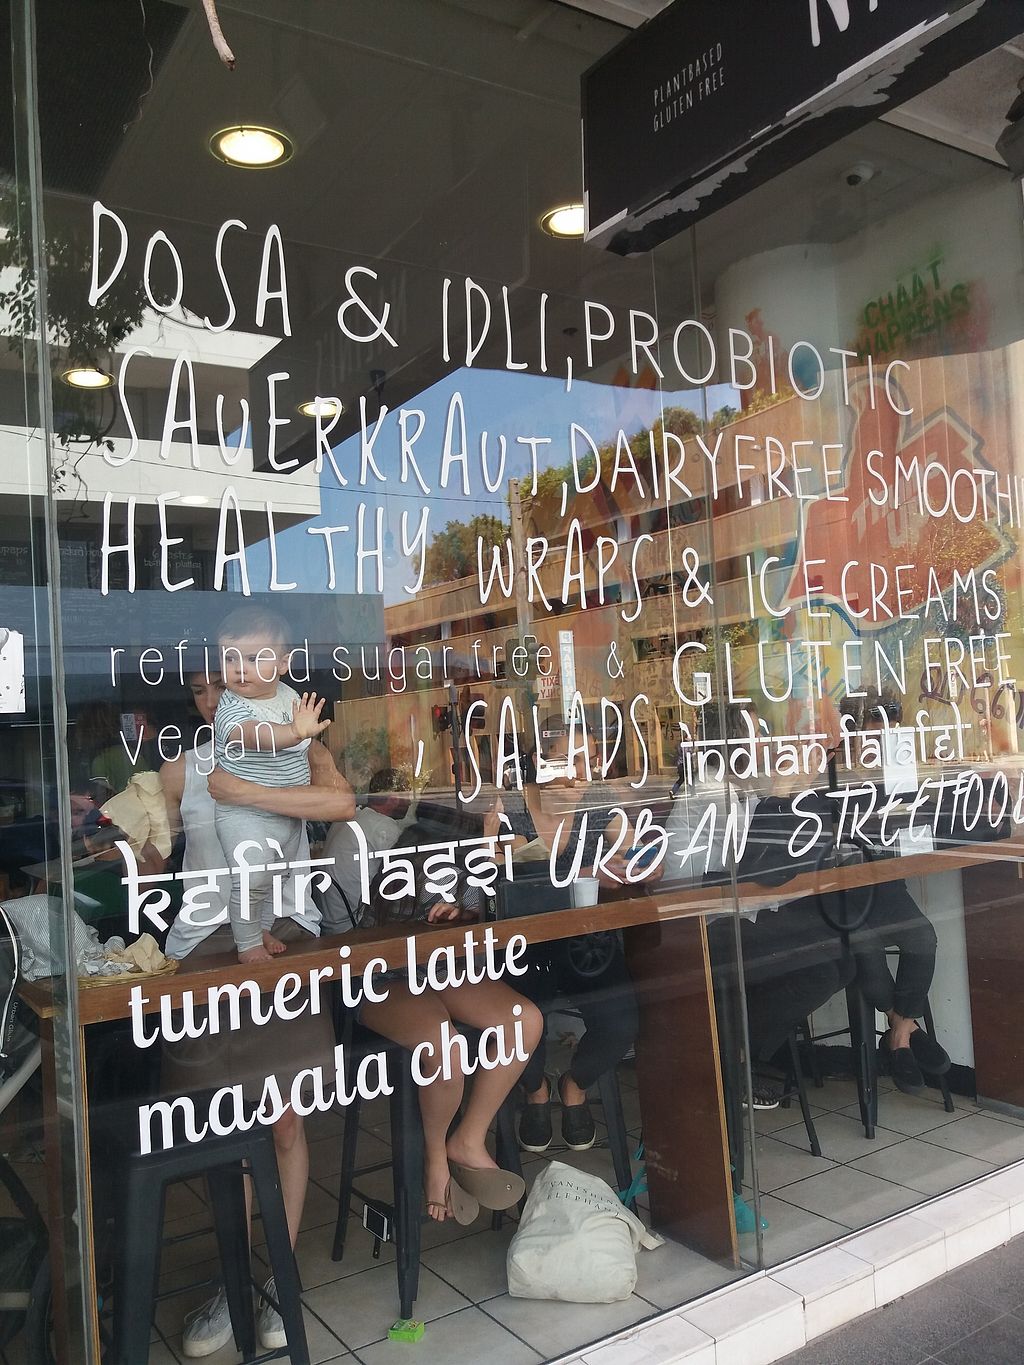 PLANTBASED
GLUTEN FREE
CHAAT
HAPPENS
DOSA & IDLI, PROBIOTIC
SAUERKRAUT, DAIRYFREE SMOOTHI
HEALTHY WRAPS & ICECREAMS
refined sugar free & GLUTEN FREE
vegan , SALADS indian falafel
kefir lassi URBAN STREETFOOD
tumeric latte
masala chai
VANISHING
ELEPHANT